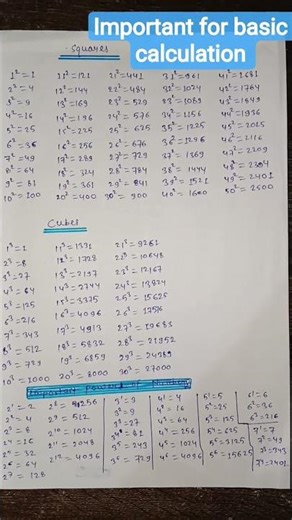 Important for basic
calculation
Squares
1²=1 11²=121 21²=441 31²=961 41²=1681
2²=4 12²=144 22²=484 32²=1024 42²=1764
3²=9 13²=169 23²=529 33²=1089 43²=1849
4²=16 14²=196 24²=576 34²=1156 44²=1936
5²=25 15²=225 25²=625 35²=1225 45²=2025
6²=36 16²=256 26²=676 36²=1296 46²=2116
7²=49 17²=289 27²=729 37²=1369 47²=2209
8²=64 18²=324 28²=784 38²=1444 48²=2304
9²=81 19²=361 29²=841 39²=1521 49²=2401
10²=100 20²=400 30²=900 40²=1600 50²=2500
Cubes
1³=1 11³=1331 21³=9261
2³=8 12³=1728 22³=10648
3³=27 13³=2197 23³=12167
4³=64 14³=2744 24³=13824
5³=125 15³=3375 25³=15625
6³=216 16³=4096 26³=17576
7³=343 17³=4913 27³=19683
8³=512 18³=5832 28³=21952
9³=729 19³=6859 29³=24389
10³=1000 20³=8000 30³=27000
2¹=2 2⁸=256 3¹=3 4¹=4 5¹=5 6¹=6
2²=4 2⁹=512 3²=9 4²=16 5²=25 6²=36
2³=8 2¹⁰=1024 3³=27 4³=64 5³=125 6³=216
2⁴=16 2¹¹=2048 3⁴=81 4⁴=256 5⁴=625 7¹=7
2⁵=32 2¹²=4096 3⁵=243 4⁵=1024 5⁵=3125 7²=49
2⁶=64 3⁶=729 4⁶=4096 5⁶=15625 7³=343
2⁷=128 7⁴=2401